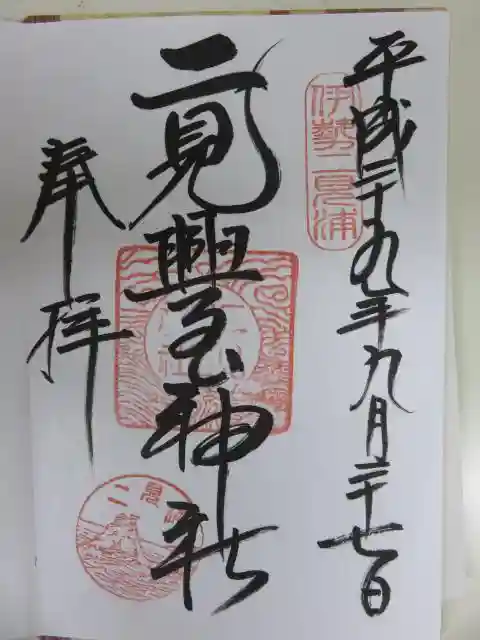 平成二十九年九月二十七日
伊勢二見浦
二見興玉神社
奉拝
二見